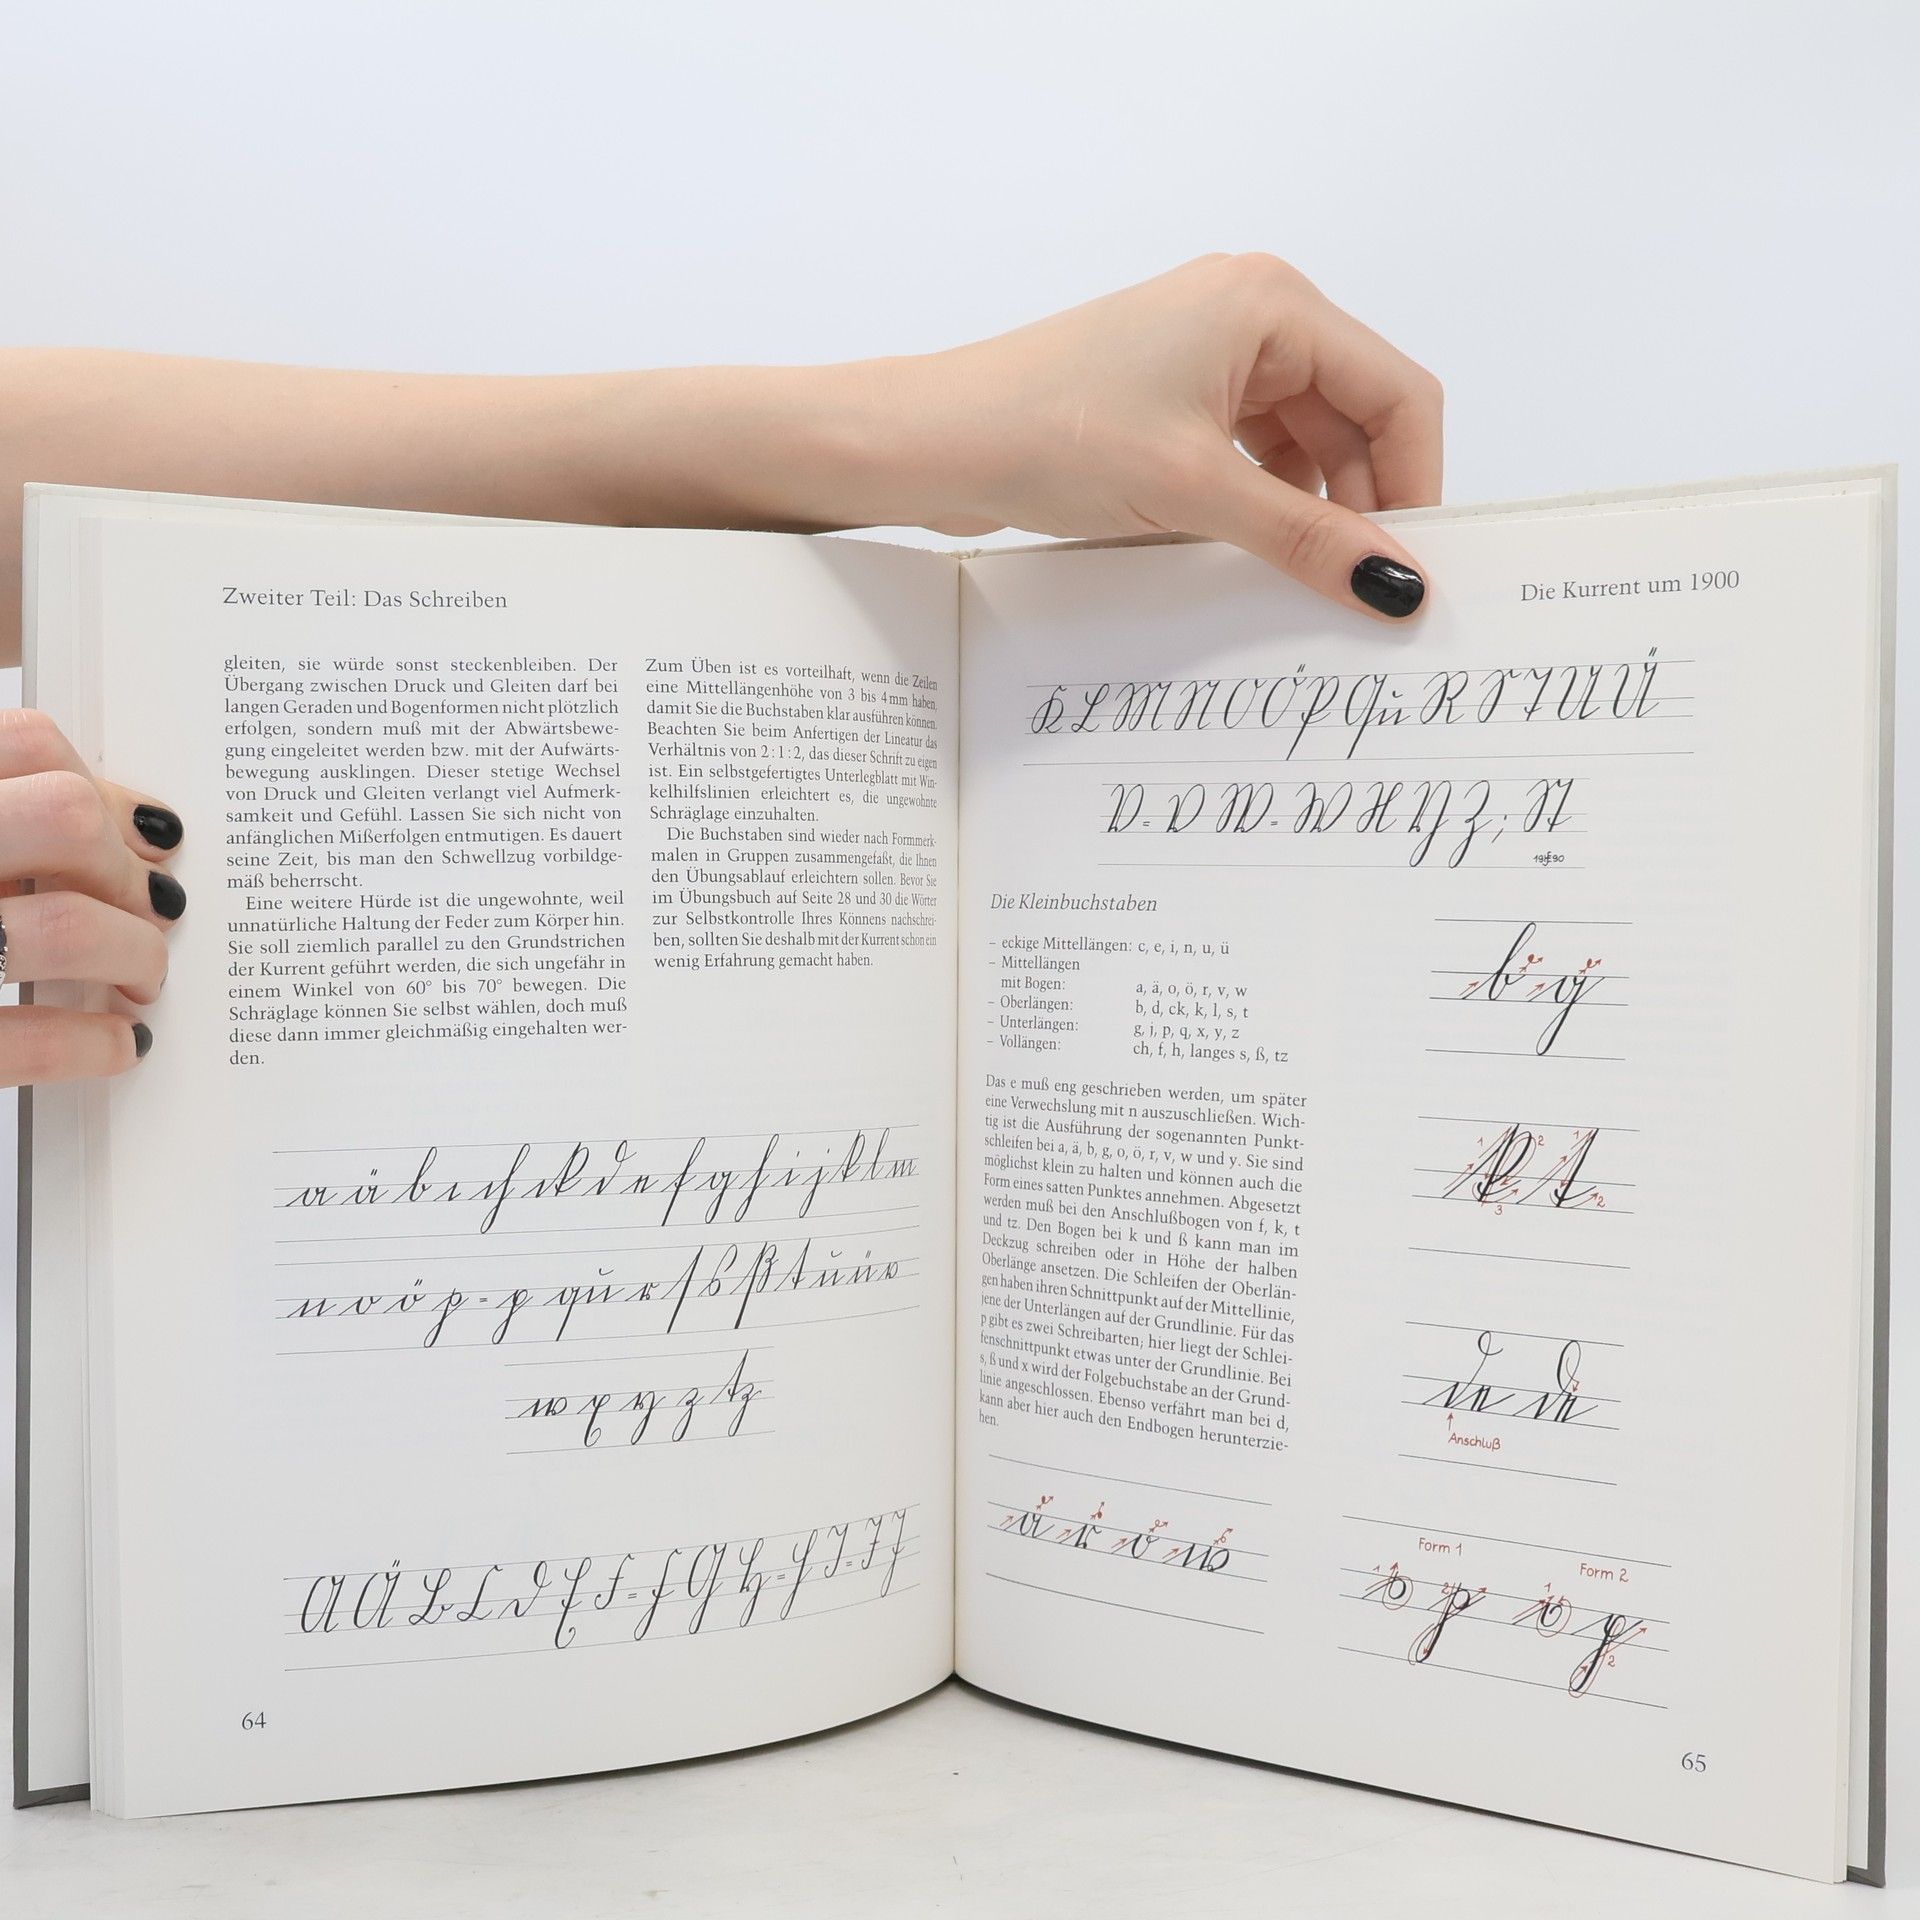 Zweiter Teil: Das Schreiben
gleiten, sie würde sonst steckenbleiben. Der
Übergang zwischen Druck und Gleiten darf bei
langen Geraden und Bogenformen nicht plötzlich
erfolgen, sondern muß mit der Abwärtsbewe-
gung eingeleitet werden bzw. mit der Aufwärts-
bewegung ausklingen. Dieser stetige Wechsel
von Druck und Gleiten verlangt viel Aufmerk-
samkeit und Gefühl. Lassen Sie sich nicht von
anfänglichen Mißerfolgen entmutigen. Es dauert
seine Zeit, bis man den Schwellzug vorbildge-
mäß beherrscht.
Eine weitere Hürde ist die ungewohnte, weil
unnatürliche Haltung der Feder zum Körper hin.
Sie soll ziemlich parallel zu den Grundstrichen
der Kurrent geführt werden, die sich ungefähr in
einem Winkel von 60° bis 70° bewegen. Die
Schräglage können Sie selbst wählen, doch muß
diese dann immer gleichmäßig eingehalten wer-
den.
Zum Üben ist es vorteilhaft, wenn die Zeilen
eine Mittellängenhöhe von 3 bis 4 mm haben,
damit Sie die Buchstaben klar ausführen können.
Beachten Sie beim Anfertigen der Lineatur das
Verhältnis von 2:1:2, das dieser Schrift zu eigen
ist. Ein selbstgefertigtes Unterlegblatt mit Win-
kelhilfslinien erleichtert es, die ungewohnte
Schräglage einzuhalten.
Die Buchstaben sind wieder nach Formmerk-
malen in Gruppen zusammengefaßt, die Ihnen
den Übungsablauf erleichtern sollen. Bevor Sie
im Übungsbuch auf Seite 28 und 30 die Wörter
zur Selbstkontrolle Ihres Könnens nachschrei-
ben, sollten Sie deshalb mit der Kurrent schon ein
wenig Erfahrung gemacht haben.
a ä b c ch ck d e f g h i j k l m
n o ö p = p qu r ſ s ß t u ü v
w x y z tz
A Ä B C D E F = F G H = H I = I J
64
Die Kurrent um 1900
K L M N O Ö P Qu R S T U Ü
V = V W = W X Y Z ; St
Die Kleinbuchstaben
– eckige Mittellängen: c, e, i, n, u, ü
– Mittellängen
mit Bogen: a, ä, o, ö, r, v, w
– Oberlängen: b, d, ck, k, l, s, t
– Unterlängen: g, j, p, q, x, y, z
– Vollängen: ch, f, h, langes s, ß, tz
Das e muß eng geschrieben werden, um später
eine Verwechslung mit n auszuschließen. Wich-
tig ist die Ausführung der sogenannten Punkt-
schleifen bei a, ä, b, g, o, ö, r, v, w und y. Sie sind
möglichst klein zu halten und können auch die
Form eines satten Punktes annehmen. Abgesetzt
werden muß bei den Anschlußbogen von f, k, t
und tz. Den Bogen bei k und ß kann man im
Deckzug schreiben oder in Höhe der halben
Oberlänge ansetzen. Die Schleifen der Oberlän-
gen haben ihren Schnittpunkt auf der Mittellinie,
jene der Unterlängen auf der Grundlinie. Für das
p gibt es zwei Schreibarten; hier liegt der Schlei-
fenschnittpunkt etwas unter der Grundlinie. Bei
s, ß und x wird der Folgebuchstabe an der Grund-
linie angeschlossen. Ebenso verfährt man bei d,
kann aber hier auch den Endbogen herunterzie-
hen.
a r o w
b g
1 2 3 k 1 2 t
de de
Anschluß
Form 1
Form 2
1 2 p 1 2 p
65